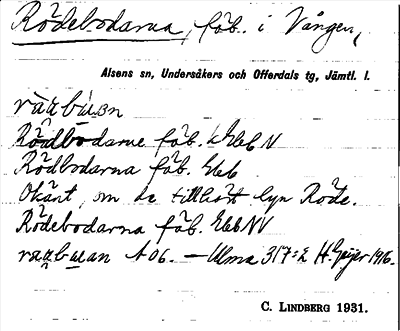 Rödebodarna, fäb. i Vången,
Alsens sn, Undersåkers och Offerdals tg, Jämtl. l.
Rödbodarne fäb. GebN
Rödbodarna fäb. Geb
Okänt, om de tillhört byn Röde.
Rödebodarna fäb. GebNV
A06. – Ulma 317:2 H. Geijer 1916.
C. LINDBERG 1931.